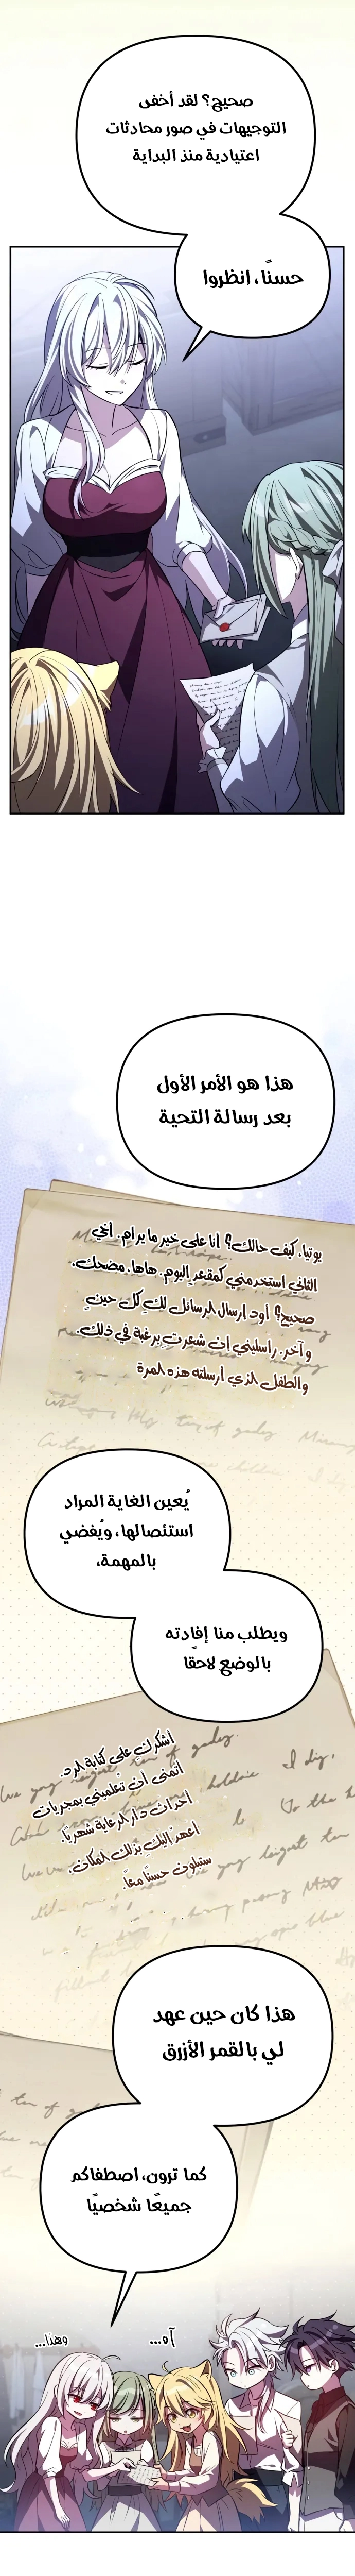 صحيح؟ لقد أخفى
التوجيهات في صور محادثات
اعتيادية منذ البداية
حسنًا، انظروا
هذا هو الأمر الأول
بعد رسالة التحية
يوتيا، كيف حالك؟ أنا على خير ما يرام. أخي
الثاني استخدمني كمقعدٍ اليوم. هاها، مضحك،
صحيح؟ أود إرسال الرسائل لكِ كل حينٍ
وآخر. راسليني إن شعرتِ برغبة في ذلك.
والطفل الذي أرسلته هذه المرة
يُعين الغاية المراد
استئصالها، ويُفضي
بالمهمة،
ويطلب منا إفادته
بالوضع لاحقًا
أشكرك على كتابة الرد.
أتمنى أن تعلميني بمجريات
أحداث دار الرعاية شهريًا.
أعهد إليك بذلك المكان.
ستبلون حسنًا معًا.
هذا كان حين عهد
لي بالقمر الأزرق
كما ترون، اصطفاكم
جميعًا شخصيًا
آه...
وهذا...